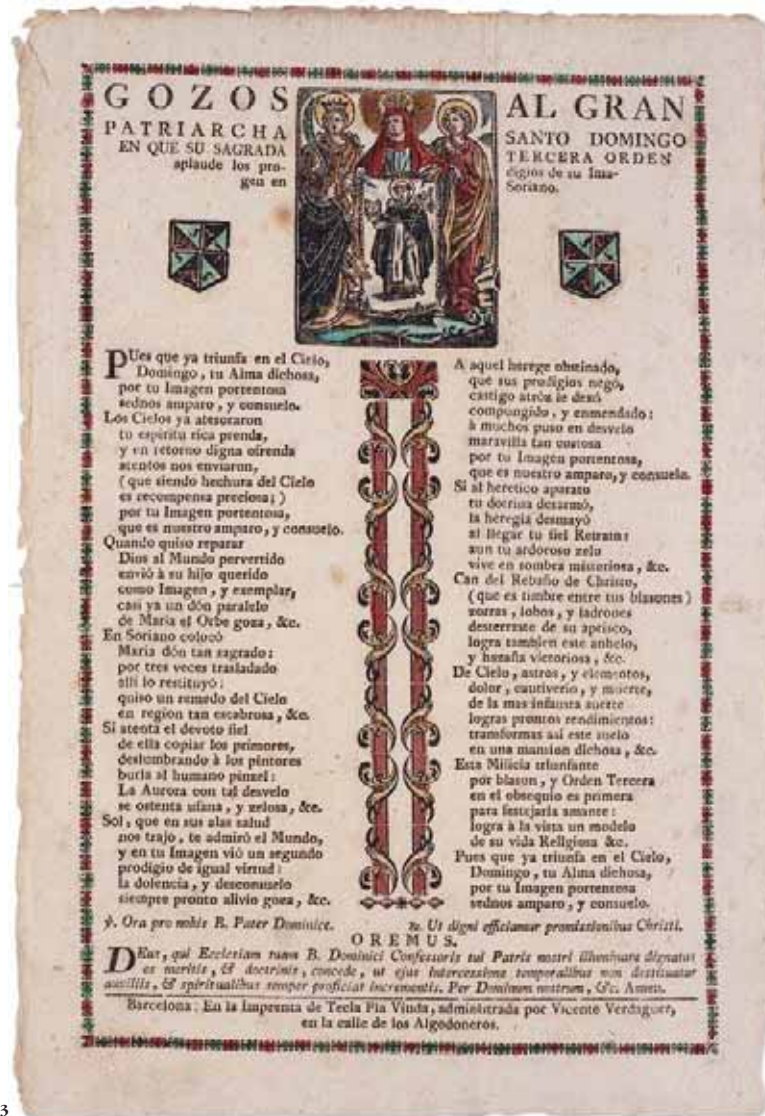 GOZOS AL GRAN
PATRIARCHA SANTO DOMINGO
EN QUE SU SAGRADA TERCERA ORDEN
aplaude los pro- digios de su Ima-
gen en Soriano.
PUes que ya triunfa en el Cielo,
Domingo, tu Alma dichosa,
por tu Imagen portentosa
sednos amparo, y consuelo.
Los Cielos ya atesoraron
tu espiritu rica prenda,
y en retorno digna ofrenda
atentos nos enviaron,
(que siendo hechura del Cielo
es recompensa preciosa;)
por tu Imagen portentosa,
que es nuestro amparo, y consuelo.
Quando quiso reparar
Dios al Mundo pervertido
envió à su hijo querido
como Imagen, y exemplar,
casi ya un dón paralelo
de Maria el Orbe goza, &c.
En Soriano colocó
Maria dón tan sagrado:
por tres veces trasladado
alli lo restituyó:
quiso un remedo del Cielo
en region tan escabrosa, &c.
Si atenta el devoto fiel
de ella copiar los primores,
deslumbrando à los pintores
burla al humano pinzel:
La Aurora con tal desvelo
se ostenta ufana, y zelosa, &c.
Sol, que en sus alas salud
nos trajo, te admiró el Mundo,
y en tu Imagen vió un segundo
prodigio de igual virtud:
la dolencia, y desconsuelo
siempre pronto alivio goza, &c.
A aquel herege obstinado,
que sus prodigios negó,
castigo atróz le dexó
compungido, y enmendado:
à muchos puso en desvelo
maravilla tan costosa
por tu Imagen portentosa,
que es nuestro amparo, y consuelo.
Si al heretico aparato
tu doctrina desarmó,
la heregia desmayó
al llegar tu fiel Retrato:
aun tu ardoroso zelo
vive en sombra misteriosa, &c.
Can del Rebaño de Christo,
(que es timbre entre tus blasones)
zorras, lobos, y ladrones
desterraste de su aprisco,
logra tambien este anhelo,
y hazaña victoriosa, &c.
De Cielo, astros, y elementos,
dolor, cautiverio, y muerte,
de la mas infausta suerte
logras prontos rendimientos:
transformas asi este suelo
en una mansion dichosa, &c.
Esta Milicia triunfante
por blason, y Orden Tercera
en el obsequio es primera
para festejarla amante:
logra à la vista un modelo
de su vida Religiosa &c.
Pues que ya triunfa en el Cielo,
Domingo, tu Alma dichosa,
por tu Imagen portentosa
sednos amparo, y consuelo.
℣. Ora pro nobis B. Pater Dominice. ℟. Ut digni efficiamur promissionibus Christi.
OREMUS.
DEus, qui Ecclesiam tuam B. Dominici Confessoris tui Patris nostri illuminare dignatus
es meritis, & doctrinis, concede, ut ejus intercessione temporalibus non destituatur
auxiliis, & spiritualibus semper proficiat incrementis. Per Dominum nostrum, &c. Amen.
Barcelona: En la Imprenta de Tecla Pla Viuda, administrada por Vicente Verdaguer,
en la calle de los Algodoneros.
3